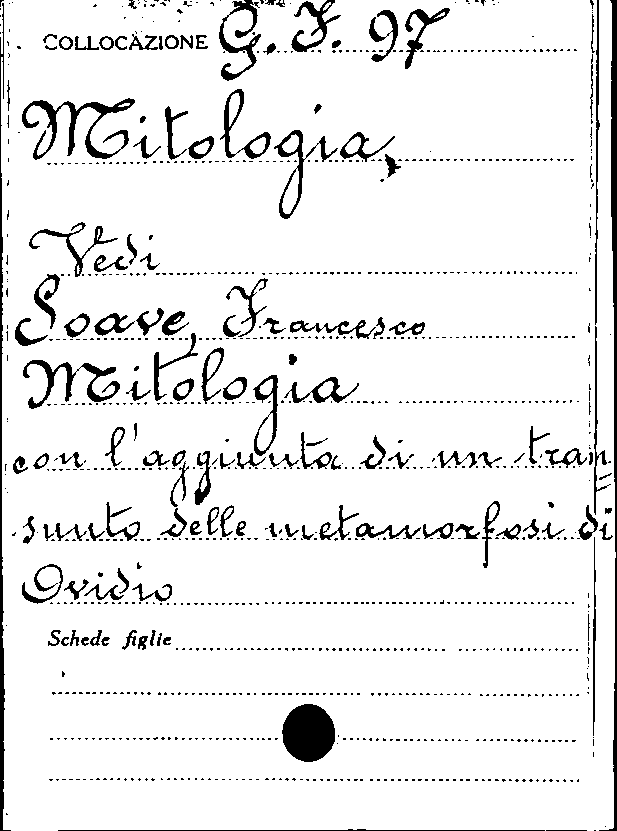 COLLOCAZIONE G. F. 97
Mitologia,
Vedi
Soave, Francesco
Mitologia
con l'aggiunta di un tran=
sunto delle metamorfosi di
Ovidio
Schede figlie